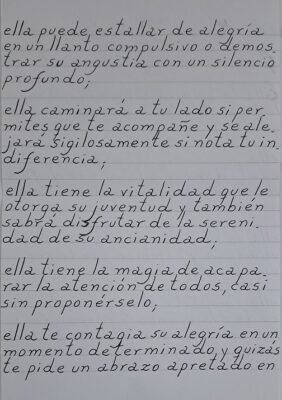 ella puede estallar de alegría
en un llanto compulsivo o demos-
trar su angustia con un silencio
profundo;
ella caminará a tu lado si per-
mites que te acompañe y se ale-
jará sigilosamente si nota tu in-
diferencia;
ella tiene la vitalidad que le
otorga su juventud y también
sabrá disfrutar de la sereni-
dad de su ancianidad;
ella tiene la magia de acapa-
rar la atención de todos, casi
sin proponérselo;
ella te contagia su alegría en un
momento determinado y quizás
te pide un abrazo apretado en